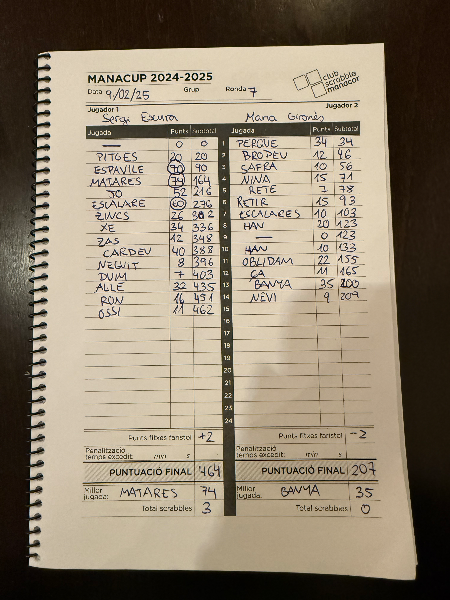 MANACUP 2024-2025
club scrabble manacor
Data 9/02/25 Grup Ronda 7
Jugador 1 Jugador 2
Sergi Maria Gironès
Jugada Punts Subtotal Jugada Punts Subtotal
— 0 0 1 PERGUE 34 34
PITGES 20 20 2 BROPEU 12 46
ESPAVILE 70 90 3 SAFRA 10 56
MATARES 74 164 4 NINA 15 71
JO 52 216 5 RETE 7 78
ESCALARE 60 276 6 RETIR 15 93
ZINCS 26 302 7 ESCALARES 10 103
XE 34 336 8 HAN 20 123
ZAS 12 348 9 — 0 123
CARDEU 40 388 10 HAN 10 133
NEGUIT 8 396 11 OBLIDAM 22 155
DUIM 7 403 12 ÇA 11 165
ALLE 32 435 13 BANYA 35 200
RON 16 451 14 NEVI 9 209
OSSI 11 462 15
16
17
18
19
20
21
22
23
24
Punts fitxes faristol +2 Punts fitxes faristol -2
Penalització temps excedit: min s Penalització temps excedit: min s
PUNTUACIÓ FINAL 464 PUNTUACIÓ FINAL 207
Millor jugada: MATARES 74 Millor jugada: BANYA 35
Total scrabbles 3 Total scrabbles 0